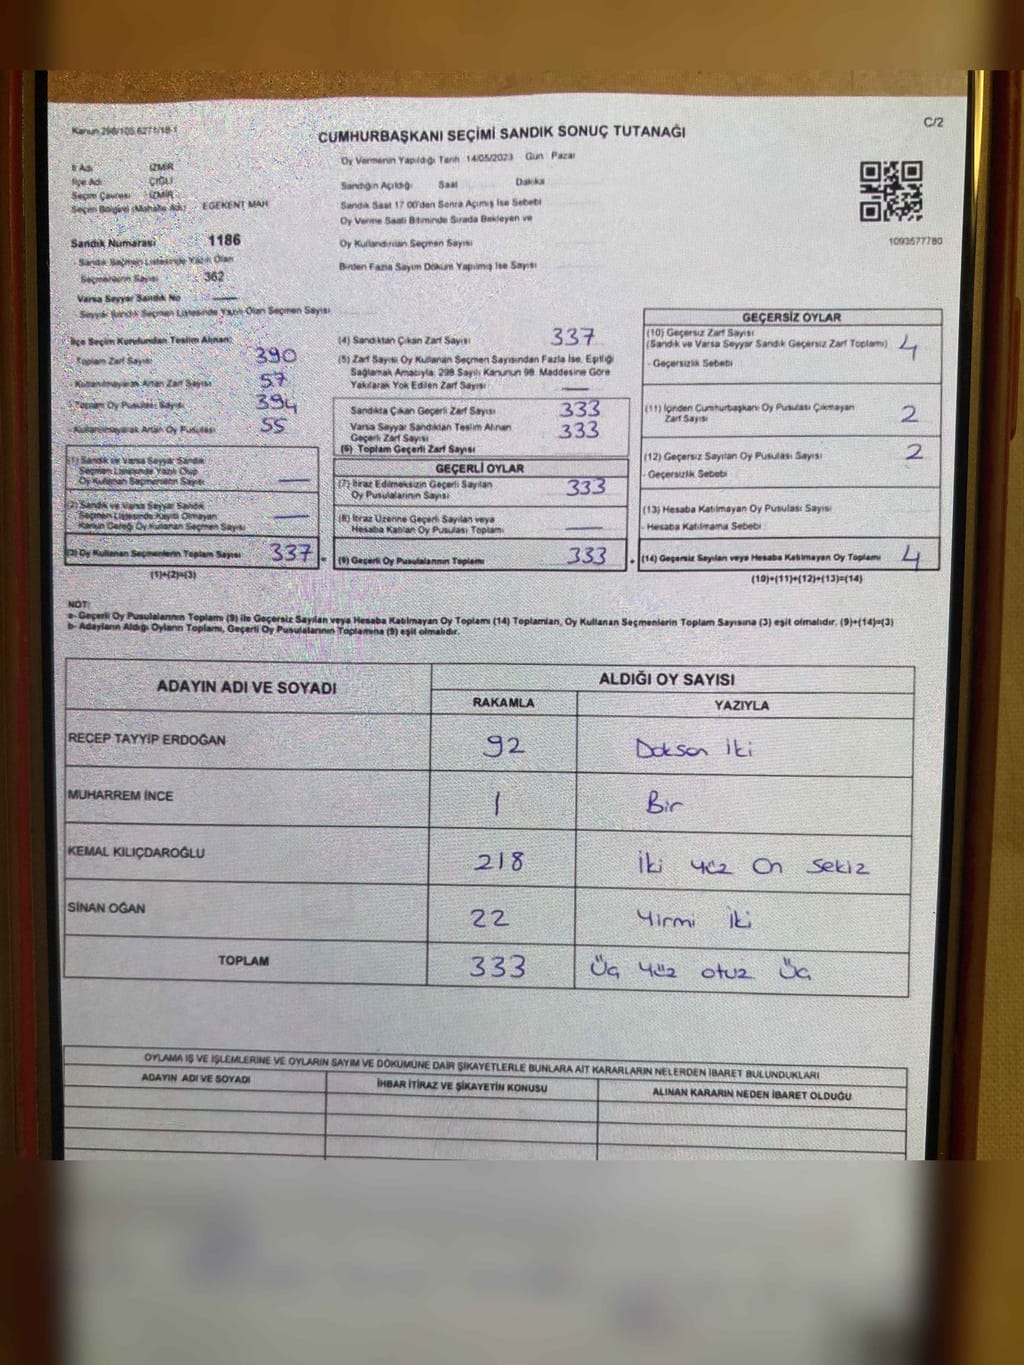 Kanun 298/105.6271/18-1
C/2
CUMHURBAŞKANI SEÇİMİ SANDIK SONUÇ TUTANAĞI
İl Adı : İZMİR
İlçe Adı : ÇİĞLİ
Seçim Çevresi : İZMİR
Seçim Bölgesi (Mahalle Adı) : EGEKENT MAH
Sandık Numarası : 1186
- Sandık Seçmen Listesinde Yazılı Olan
Seçmenlerin Sayısı : 362
Varsa Seyyar Sandık No :
- Seyyar Sandık Seçmen Listesinde Yazılı Olan Seçmen Sayısı :
Oy Vermenin Yapıldığı Tarih 14/05/2023 Gün : Pazar
Sandığın Açıldığı Saat Dakika
Sandık Saat 17.00'den Sonra Açılmış İse Sebebi
Oy Verme Saati Bitiminde Sırada Bekleyen ve
Oy Kullandırılan Seçmen Sayısı
Birden Fazla Sayım Döküm Yapılmış İse Sayısı
1093577780
İlçe Seçim Kurulundan Teslim Alınan:
- Toplam Zarf Sayısı : 390
- Kullanılmayarak Artan Zarf Sayısı : 57
- Toplam Oy Pusulası Sayısı : 394
- Kullanılmayarak Artan Oy Pusulası : 55
(1) Sandık ve Varsa Seyyar Sandık
Seçmen Listesinde Yazılı Olup
Oy Kullanan Seçmenlerin Sayısı
(2) Sandık ve Varsa Seyyar Sandık
Seçmen Listesinde Kayıtlı Olmayan
Kanun Gereği Oy Kullanan Seçmen Sayısı
(3) Oy Kullanan Seçmenlerin Toplam Sayısı 337 =
(1)+(2)=(3)
(4) Sandıktan Çıkan Zarf Sayısı : 337
(5) Zarf Sayısı Oy Kullanan Seçmen Sayısından Fazla İse, Eşitliği
Sağlamak Amacıyla, 298 Sayılı Kanunun 98. Maddesine Göre
Yakılarak Yok Edilen Zarf Sayısı :
Sandıkta Çıkan Geçerli Zarf Sayısı : 333
Varsa Seyyar Sandıktan Teslim Alınan
Geçerli Zarf Sayısı : 333
(6) Toplam Geçerli Zarf Sayısı
GEÇERLİ OYLAR
(7) İtiraz Edilmeksizin Geçerli Sayılan
Oy Pusulalarının Sayısı : 333
(8) İtiraz Üzerine Geçerli Sayılan veya
Hesaba Katılan Oy Pusulası Toplamı :
(9) Geçerli Oy Pusulalarının Toplamı : 333 +
GEÇERSİZ OYLAR
(10) Geçersiz Zarf Sayısı
(Sandık ve Varsa Seyyar Sandık Geçersiz Zarf Toplamı) : 4
- Geçersizlik Sebebi :
(11) İçinden Cumhurbaşkanı Oy Pusulası Çıkmayan
Zarf Sayısı : 2
(12) Geçersiz Sayılan Oy Pusulası Sayısı : 2
- Geçersizlik Sebebi :
(13) Hesaba Katılmayan Oy Pusulası Sayısı :
- Hesaba Katılmama Sebebi :
(14) Geçersiz Sayılan veya Hesaba Katılmayan Oy Toplamı : 4
(10)+(11)+(12)+(13)=(14)
NOT:
a- Geçerli Oy Pusulalarının Toplamı (9) ile Geçersiz Sayılan veya Hesaba Katılmayan Oy Toplamı (14) Toplamları, Oy Kullanan Seçmenlerin Toplam Sayısına (3) eşit olmalıdır. (9)+(14)=(3)
b- Adayların Aldığı Oyların Toplamı, Geçerli Oy Pusulalarının Toplamına (9) eşit olmalıdır.
ADAYIN ADI VE SOYADI
ALDIĞI OY SAYISI
RAKAMLA YAZIYLA
RECEP TAYYİP ERDOĞAN 92 Doksan İki
MUHARREM İNCE 1 Bir
KEMAL KILIÇDAROĞLU 218 İki yüz On Sekiz
SİNAN OĞAN 22 Yirmi İki
TOPLAM 333 Üç Yüz otuz Üç
OYLAMA İŞ VE İŞLEMLERİNE VE OYLARIN SAYIM VE DÖKÜMÜNE DAİR ŞİKAYETLERLE BUNLARA AİT KARARLARIN NELERDEN İBARET BULUNDUKLARI
ADAYIN ADI VE SOYADI İHBAR İTİRAZ VE ŞİKAYETİN KONUSU ALINAN KARARIN NEDEN İBARET OLDUĞU